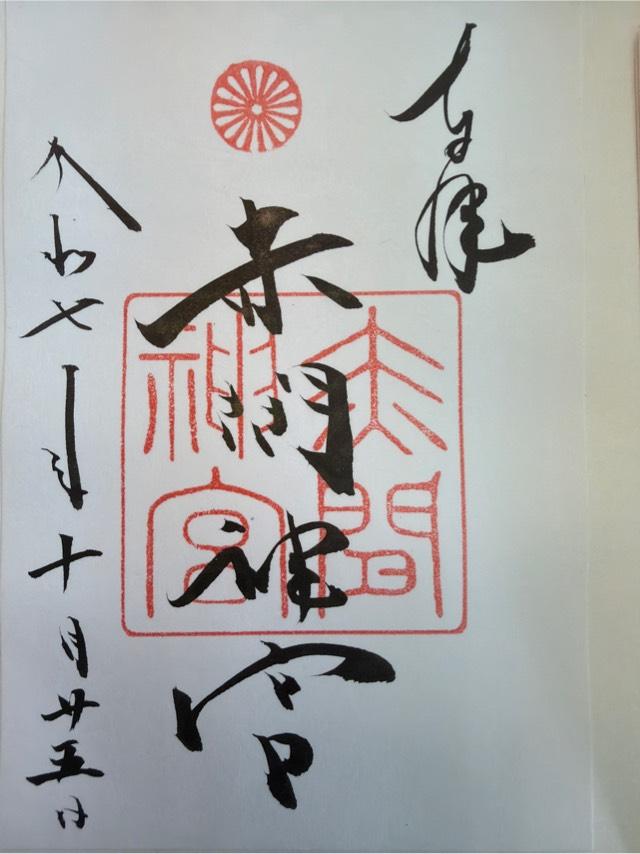 奉拝
赤間神宮
赤間神宮
令和七年十月廿五日